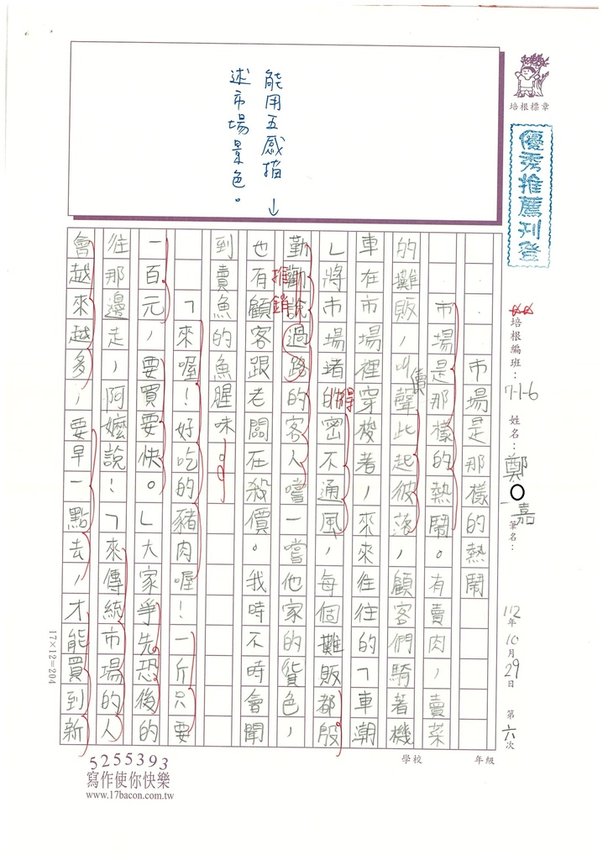 能用五感描↓
述市場景色。
培根標章
優秀推薦刊登
培根編班:7-1-6 姓名:鄭〇嘉 筆名:
112年10月29日 第六次
年級
學校
市場是那樣的熱鬧
市場是那樣的熱鬧。有賣肉,賣菜
的攤販,叫賣聲此起彼落,顧客們騎著機
車在市場裡穿梭者,來來往往的「車潮
」將市場堵的得密不通風,每個攤販都殷
勤勸說推銷過路的客人嚐一嚐他家的貨色,
也有顧客跟老闆在殺價。我時不時會聞
到賣魚的魚腥味。
「來喔!好吃的豬肉喔!一斤只要
一百元,要買要快。」大家爭先恐後的
往那邊走,阿嬤說:「來傳統市場的人
會越來越多,要早一點去,才能買到新
17×12=204
5255393
寫作使你快樂
www.17bacon.com.tw